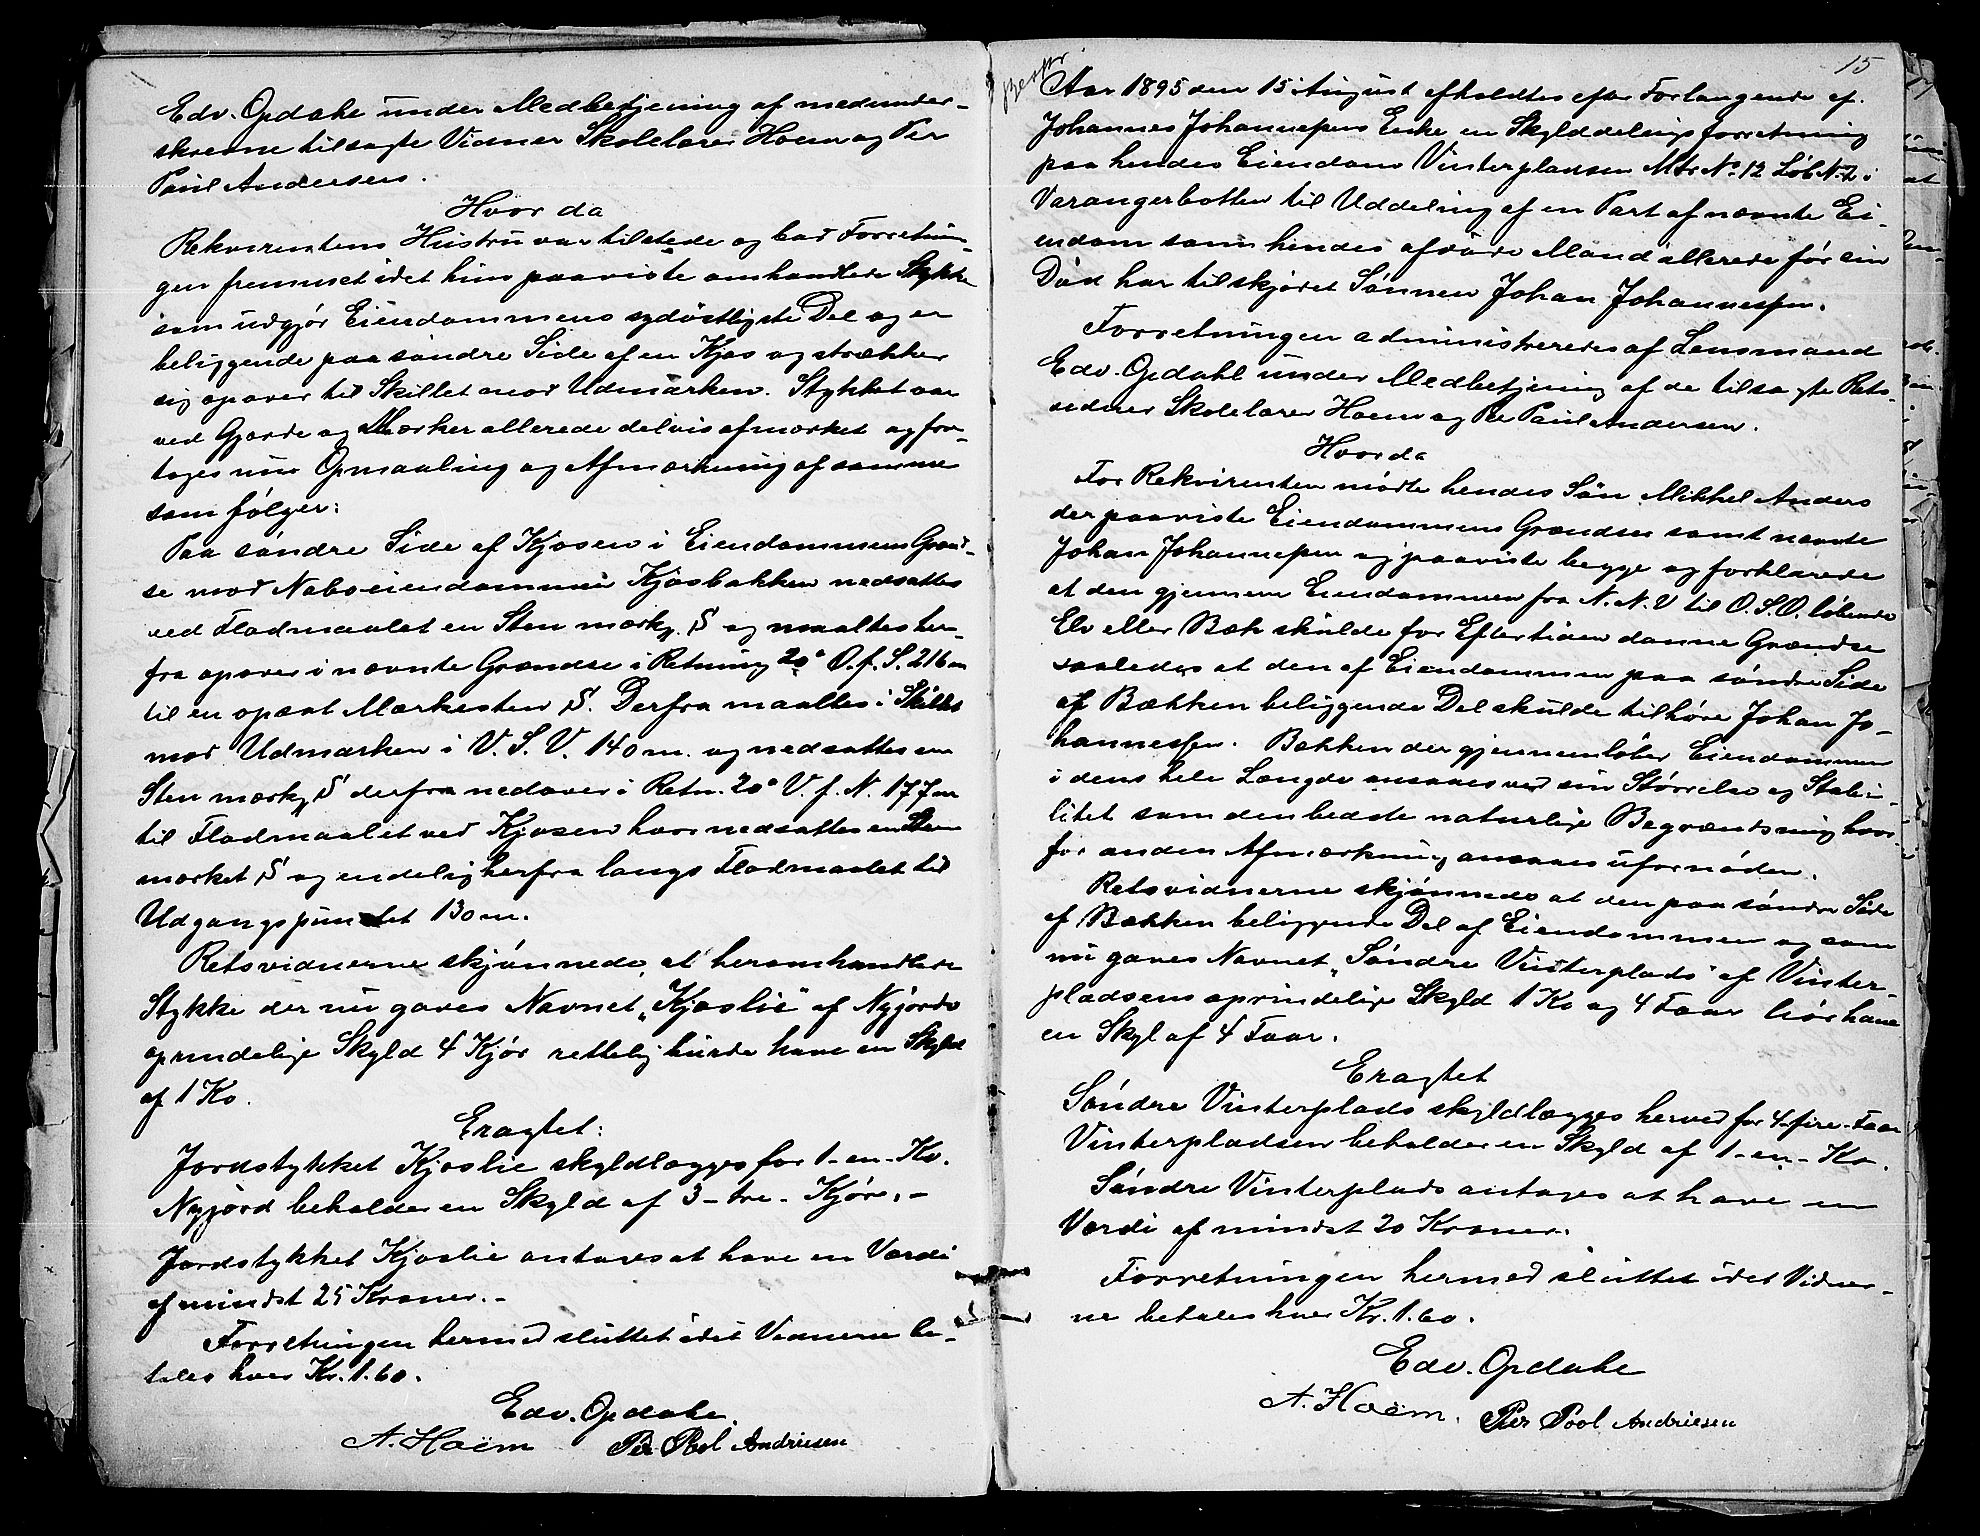 Edv. Opdahl under Medbetjening af medunder-
skrevne tilsagte Vidner Skolelærer Hoem og Per
Paul Andersen.
Hvor da
Rekvirentens Hustru var tilstede og bad Forretnin-
gen fremmet idet hun paaviste omhandlede Stykke
som udgjør Eiendommens sydøstligste Del og er
beliggende paa søndre Side af en Kjos og strækker
sig opover til Skillet mod Udmarken. Stykket var
ved Gjærde og Mærker allerede delvis afmærket og fore-
toges nu Opmaaling og Afmærkning af samme
som følger:
Paa søndre Side af Kjosen i Eiendommens Grænd-
se mod Naboeiendommen Kjosbakken nedsattes
ved Flodmaalet en Sten mærk. S og maaltes her-
fra opover i nævnte Grændse i Retning 20° O. f. S. 216 m
til en opsat Mærkesten S. Derfra maaltes i Skillet
mod Udmarken i V. S. V. 140 m. og nedsattes en
Sten mærk. S derfra nedover i Retn. 20° V. f. N. 177 m
til Flodmaalet ved Kjosen hvor nedsattes en Sten
mærket S og endelig herfra langs Flodmaalet til
Udgangspunktet 130 m.
Retsvidnerne skjønnede at heromhandlede
Stykke der nu gaves Navnet „Kjoslie" af Nyjords
oprindelige Skyld 4 Kjør rettelig burde have en Skyld
af 1 Ko.
Eragtet:
Jordstykket Kjoslie skyldlægges for 1 - en - Ko.
Nyjord beholder en Skyld af 3 - tre - Kjør. -
Jordstykket Kjoslie antages at have en Værdi
af mindst 25 Kroner. -
Forretningen hermed sluttet idet Vidnerne be-
tales hver Kr. 1.60.
Edv. Opdahl.
A. Hoëm Per Pol Andriesen
15
Aar 1895 den 15 August afholdtes efter Forlangende af
Johannes Johannesens Enke en Skylddelingsforretning
paa hendes Eiendom Vinterpladsen Mtr No. 12 Løb N. 2 i
Varangerbotten til Uddeling af en Part af nævnte Ei-
endom som hendes afdøde Mand allerede før sin
Død har tilskjødet Sønnen Johan Johannessen.
Forretningen administreredes af Lensmand
Edv. Opdahl under Medbetjening af de tilsagte Rets-
vidner Skolelærer Hoem og Per Paul Andersen.
Hvor da
For Rekvirenten mødte hendes Søn Mikkel Anders
der paaviste Eiendommens Grændser samt nævnte
Johan Johannesen og paaviste begge og forklarede
at den gjennem Eiendommen fra N. N. V til O. S. O. løbende
Elv eller Bæk skulde for Eftertiden danne Grændse
saaledes at den af Eiendommen paa søndre Side
af Bækken beliggende Del skulde tilhøre Johan Jo-
hannessen. Bækken der gjennemløber Eiendommen
i dens hele Længde ansaaes ved sin Størrelse og Stabi-
litet som den bedste naturlige Begrændsning hvor-
for anden Afmærkning ansaaes ufornøden.
Retsvidnerne skjønnede at den paa søndre Side
af Bækken beliggende Del af Eiendommen og som
nu gaves Navnet „Søndre Vinterplads" af Vinter-
pladsens oprindelige Skyld 1 Ko og 4 Faar bør have
en Skyl af 4 Faar.
Eragtet
Søndre Vinterplads skyldlægges herved for 4-fire-Faar
Vinterpladsen beholder en Skyld af 1 - en - Ko.
Søndre Vinterplads antages at have en
Værdi af mindst 20 Kroner.
Forretningen hermed sluttet idet Vidner-
ne betales hver Kr. 1.60.
Edv. Opdahl
A. Hoëm. Per Pool Andriesen